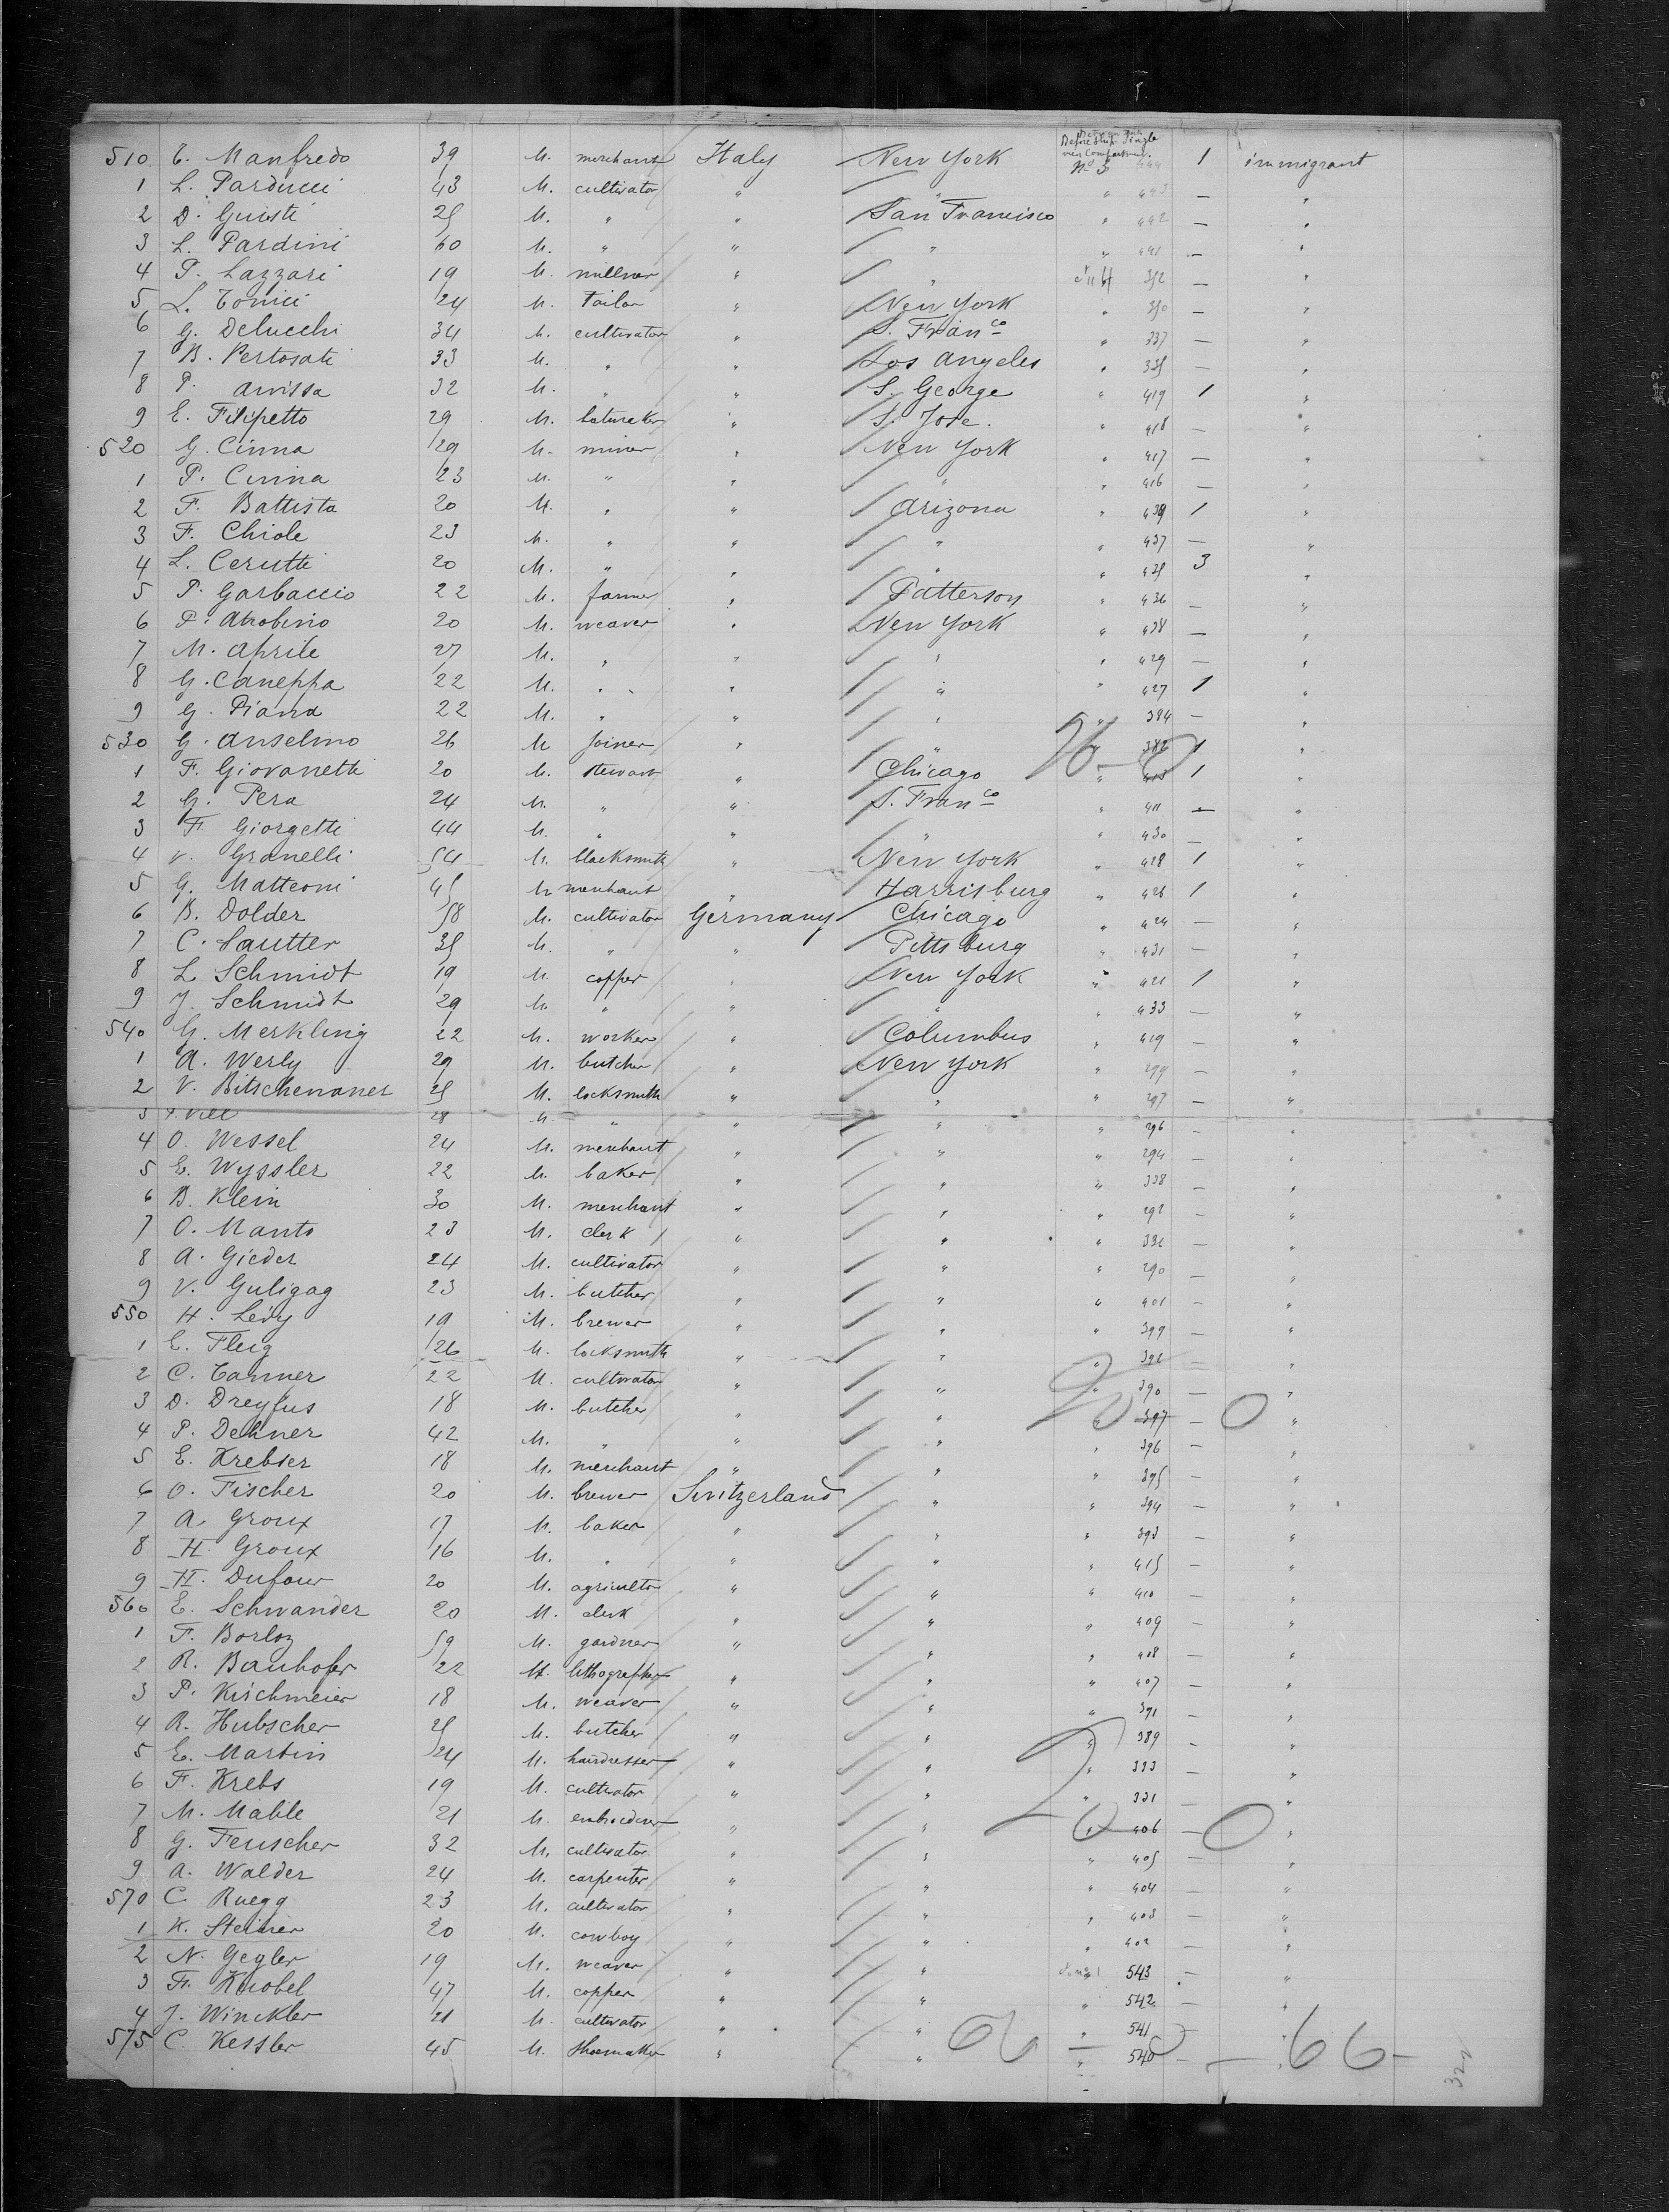 Before Ship Single
men Compartment
510 C. Manfredo 39 M. merchant Italy New York No 3 444 1 immigrant
1 L. Parducci 43 M. cultivator " " " 443 — "
2 D. Guisti 25 M. " " San Francisco " 442 — "
3 L. Pardini 60 M. " " " " 441 — "
4 P. Lazzari 19 M. millner " " No 4 352 — "
5 L. Tonici 24 M. Tailor " New York " 350 — "
6 G. Delucchi 34 M. cultivator " S. Franco " 337 — "
7 B. Pertosati 33 M. " " Los Angeles " 335 — "
8 P. Arvissa 32 M. " " S. George " 419 1 "
9 E. Filipetto 29 M. hatmaker " S. Jose. " 418 — "
520 G. Cinna 29 M. miner " New York " 417 — "
1 P. Cinna 23 M. " " " " 416 — "
2 F. Battista 20 M. " " Arizona " 439 1 "
3 F. Chiole 23 M. " " " " 437 — "
4 L. Cerutti 20 M. " " " " 435 3 "
5 P. Garbaccio 22 M. farmer " Patterson " 436 — "
6 P. Atrobino 20 M. weaver " New York " 438 — "
7 M. Aprile 27 M. " " " " 429 — "
8 G. Caneppa 22 M. " " " " 427 1 "
9 G. Piana 22 M. " " " " 384 — "
530 G. Anselmo 26 M joiner " " " 382 1 "
1 F. Giovanetti 20 M. stewart " Chicago " 413 1 "
2 G. Pera 24 M. " " S. Franco " 411 — "
3 F. Giorgetti 44 M. " " " " 430 — "
4 V. Granelli 54 M. blacksmith " New York " 428 1 "
5 G. Matteoni 45 M merchant " Harrisburg " 426 1 "
6 B. Dolder 58 M. cultivator Germany Chicago " 424 — "
7 C. Sautter 35 M. " " Pittsburg " 431 — "
8 L Schmidt 19 M. copper " New York " 421 1 "
9 J. Schmidt 29 M. " " " " 433 — "
540 G. Merkling 22 M. worker " Columbus " 419 — "
1 A. Werly 29 M. butcher " New York " 299 — "
2 V. Bitschenaner 25 M. locksmith " " " 297 — "
3 28 M. " " " " 296 — "
4 O. Wessel 24 M. merchant " " " 294 — "
5 E. Wyssler 22 M. baker " " " 338 — "
6 B. Klein 30 M. merchant " " " 292 — "
7 O. Manto 23 M. clerk " " " 332 — "
8 A. Gieder 24 M. cultivator " " " 290 — "
9 V. Guligag 23 M. butcher " " " 401 — "
550 H. Lévy 19 M. brewer " " " 399 — "
1 E. Fleig 26 M. locksmith " " " 392 — "
2 C. Tanner 22 M. cultivator " " " 390 — "
3 D. Dreyfus 18 M. butcher " " " 397 — 0 "
4 P. Dehner 42 M. " " " " 396 — "
5 E. Krebser 18 M. merchant " " " 395 — "
6 O. Fischer 20 M. brewer Switzerland " " 394 — "
7 A. Groux 17 M. baker " " " 393 — "
8 H. Groux 16 M. " " " " 415 — "
9 H. Dufour 20 M. agricultr " " " 410 — "
560 E. Schwander 20 M. clerk " " " 409 — "
1 F. Borloz 59 M. gardner " " " 408 — "
2 R. Bauhofer 22 M. lithographer " " " 407 — "
3 P. Kirchmeier 18 M. weaver " " " 391 — "
4 R. Hubscher 25 M. butcher " " " 389 — "
5 E. Martin 24 M. hairdresser " " " 333 — "
6 F. Krebs 19 M. cultivator " " " 331 — "
7 M. Mable 21 M. embroederer " " " 406 — 0 "
8 G. Feuscher 32 M. cultivator " " " 405 — "
9 A. Walder 24 M. carpenter " " " 404 — "
570 C Ruegg 23 M. cultivator " " " 403 — "
1 K. Steiner 20 M. cowboy " " " 402 — "
2 N. Gegler 19 M. weaver " " 543 — "
3 Fr. Knobel 47 M. copper " " " 542 — "
4 J. Winckler 21 M. cultivator " " " 541 — "
575 C. Kessler 45 M. Shoemaker " " " 540 — 66 —